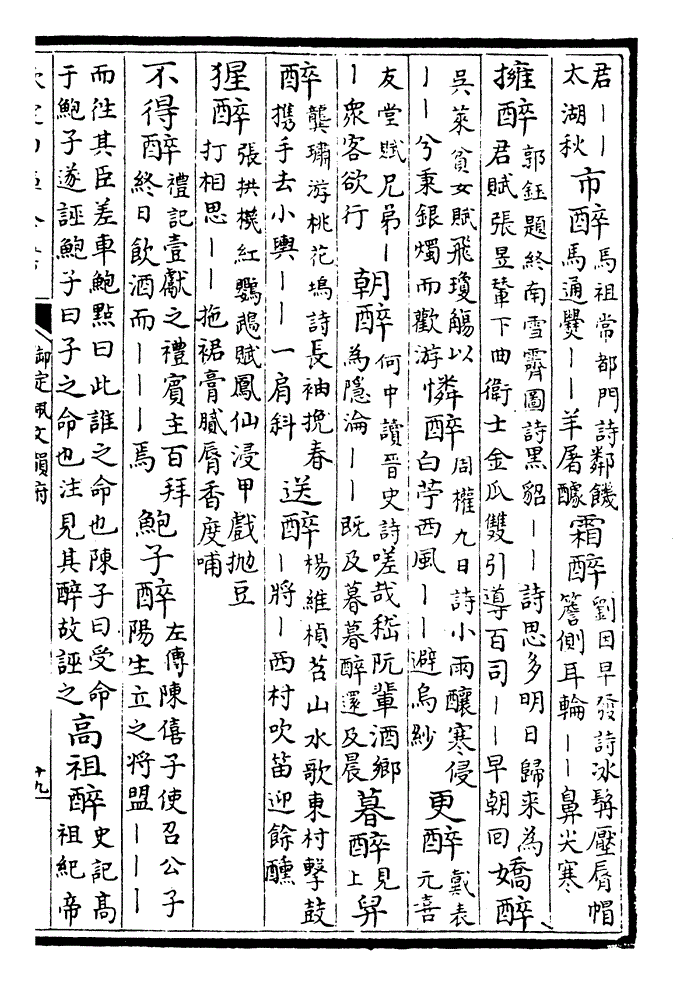 君丨丨太湖秋 市醉 馬祖常都門詩鄰饑馬通爨丨丨羊屠醵 霜醉 劉因早發詩冰髯壓脣帽簷側耳輪丨丨鼻尖寒
擁醉 郭鈺題終南雪霽圖詩黑貂丨丨詩思多明日歸来為君賦張昱輦下曲衛士金瓜雙引導百司丨丨早朝回 嬌醉
吳萊貧女賦飛瓊觴以丨丨兮秉銀燭而歡游 憐醉 周權九日詩小雨釀寒侵白苧西風丨丨避烏紗 更醉 戴表元喜
友堂賦兄弟丨丨衆客欲行 朝醉 何中讀晉史詩嗟哉嵇阮輩酒鄉為隱淪丨丨既及暮暮醉還及晨 暮醉 見上 舁
醉 龔璛游桃花塢詩長袖挽春攜手去小輿丨丨一肩斜 送醉 楊維楨苕山水歌東村擊鼓丨將丨西村吹笛迎餘醺
猩醉 張拱機紅鸚鵡賦鳳仙浸甲戲抛豆打相思丨丨拖裙膏膩脣香度哺
不得醉 禮記壹獻之禮賓主百拜終日飲酒而丨丨丨焉 鮑子醉 左傳陳僖子使召公子陽生立之將盟丨丨丨
而往其臣差車鮑點曰此誰之命也陳子曰受命于鮑子遂誣鮑子曰子之命也注見其醉故誣之 高祖醉 史記高祖紀帝
御定佩文韻府
十九